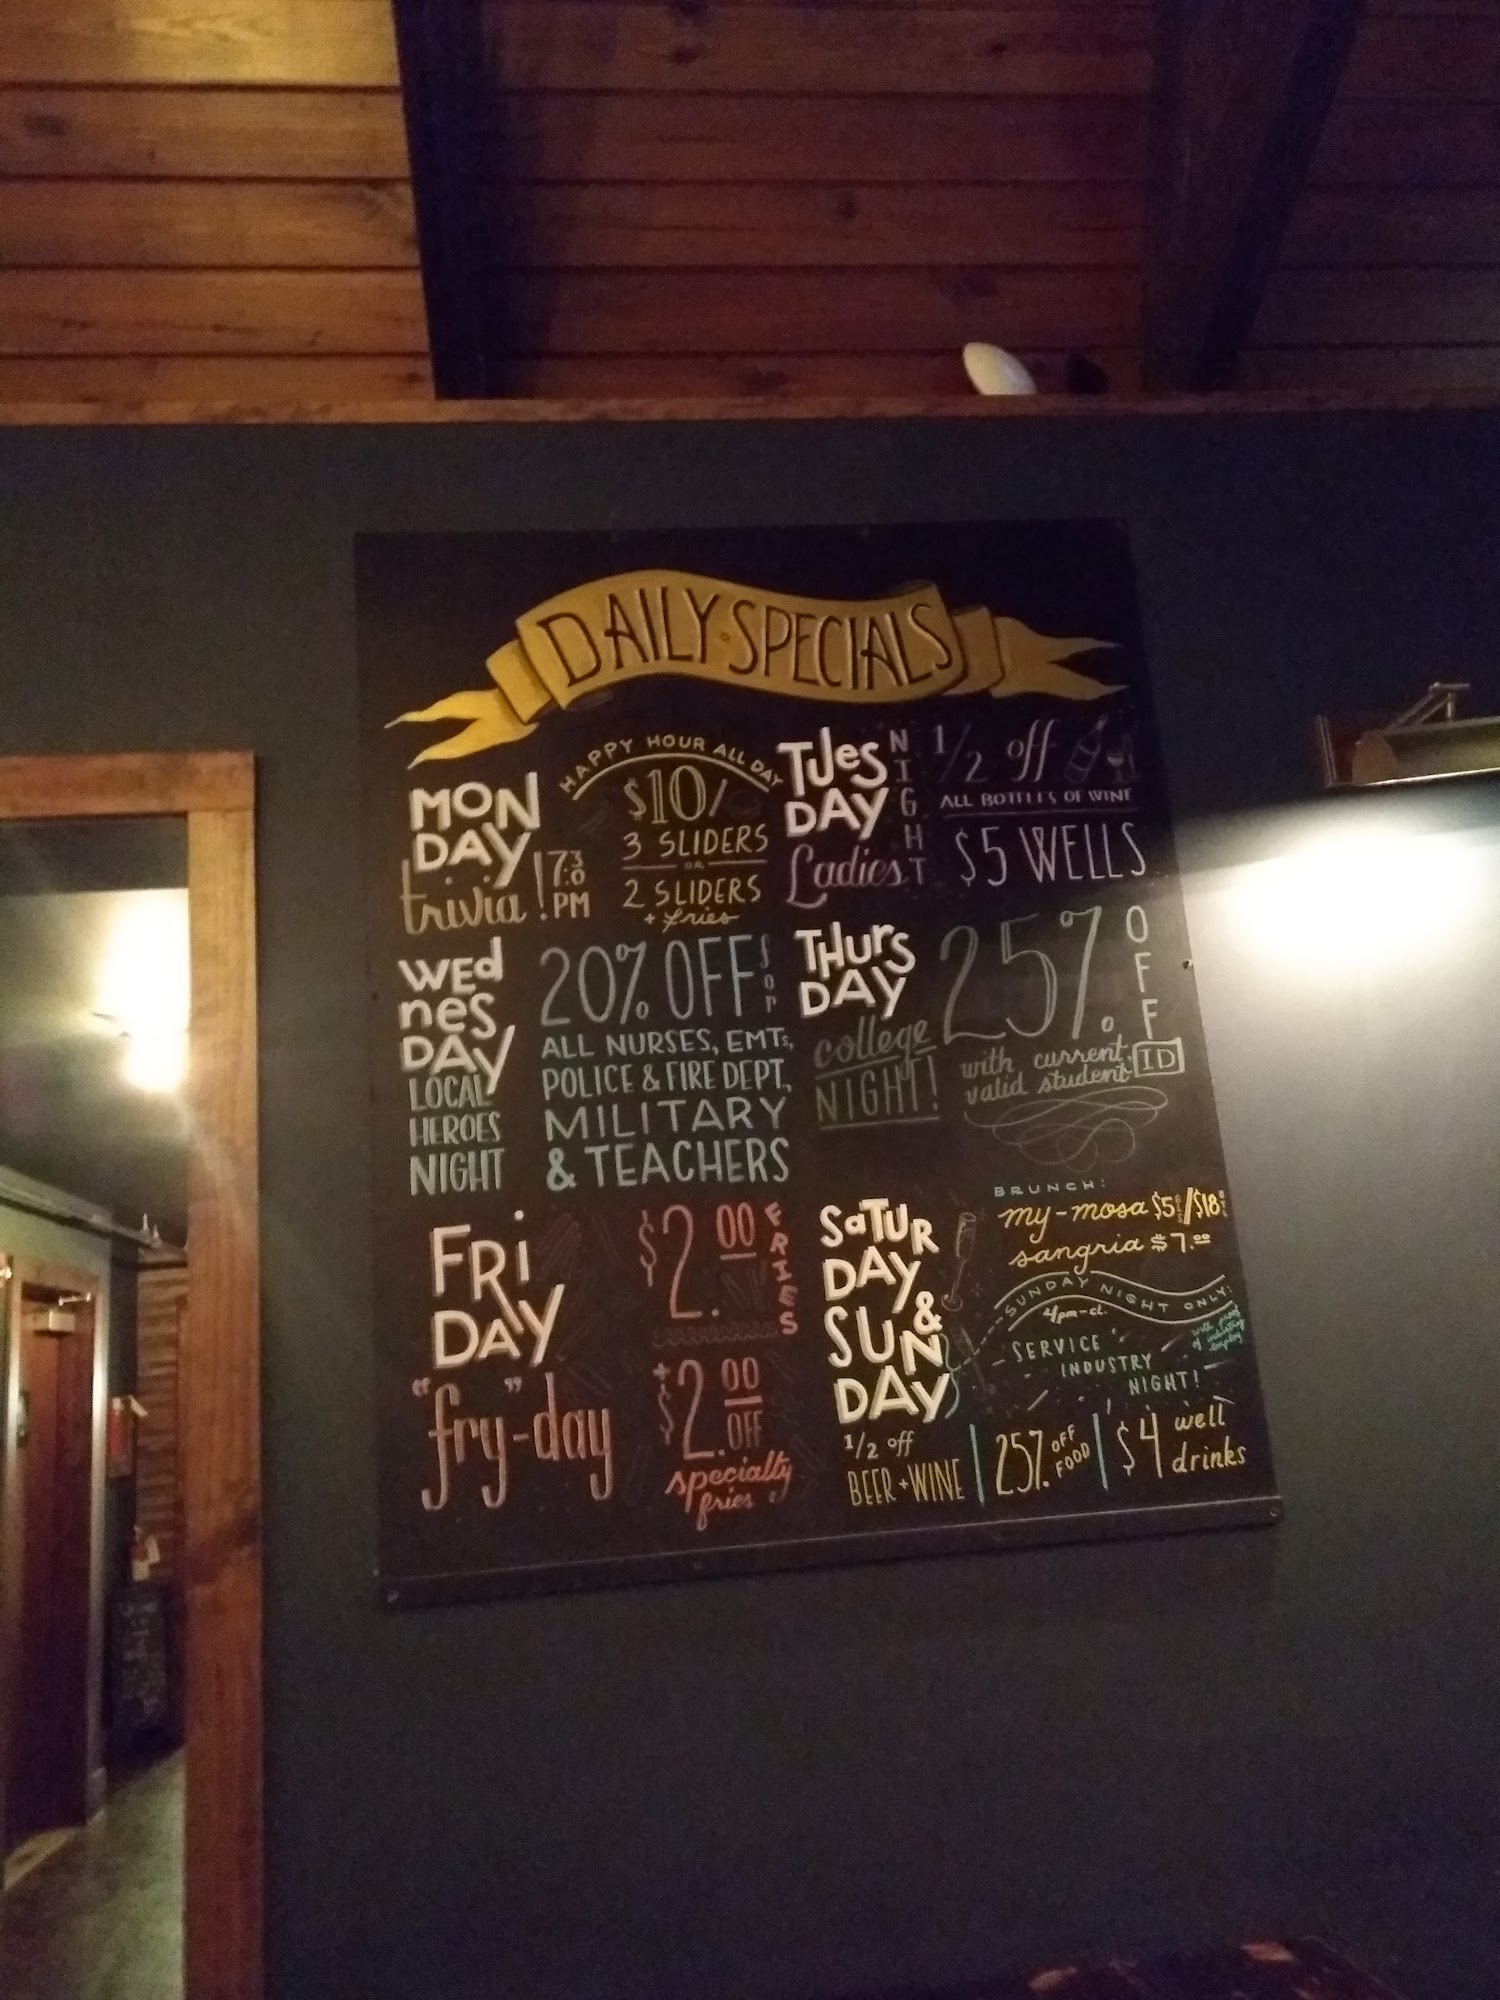 DAILY SPECIALS
MONDAY
trivia! 7:30 PM
HAPPY HOUR ALL DAY
$10/
3 SLIDERS
OR
2 SLIDERS
+ fries
TUESDAY
Ladies NIGHT
1/2 off
ALL BOTTLES OF WINE
$5 WELLS
WEDNESDAY
LOCAL
HEROES
NIGHT
20% OFF for
ALL NURSES, EMTs,
POLICE & FIRE DEPT.,
MILITARY
& TEACHERS
THURSDAY
college
NIGHT!
25% OFF
with current
valid student ID
FRIDAY
"fry"-day
$2.00 FRIES
+
$2.00 OFF
specialty
fries
SATURDAY &
SUNDAY
BRUNCH:
my-mosa $5/$18
sangria $7.00
SUNDAY NIGHT ONLY:
4pm-cl.
SERVICE
INDUSTRY
NIGHT!
with proof
of industry
employ
1/2 off
BEER + WINE
25% OFF FOOD
$4 well
drinks